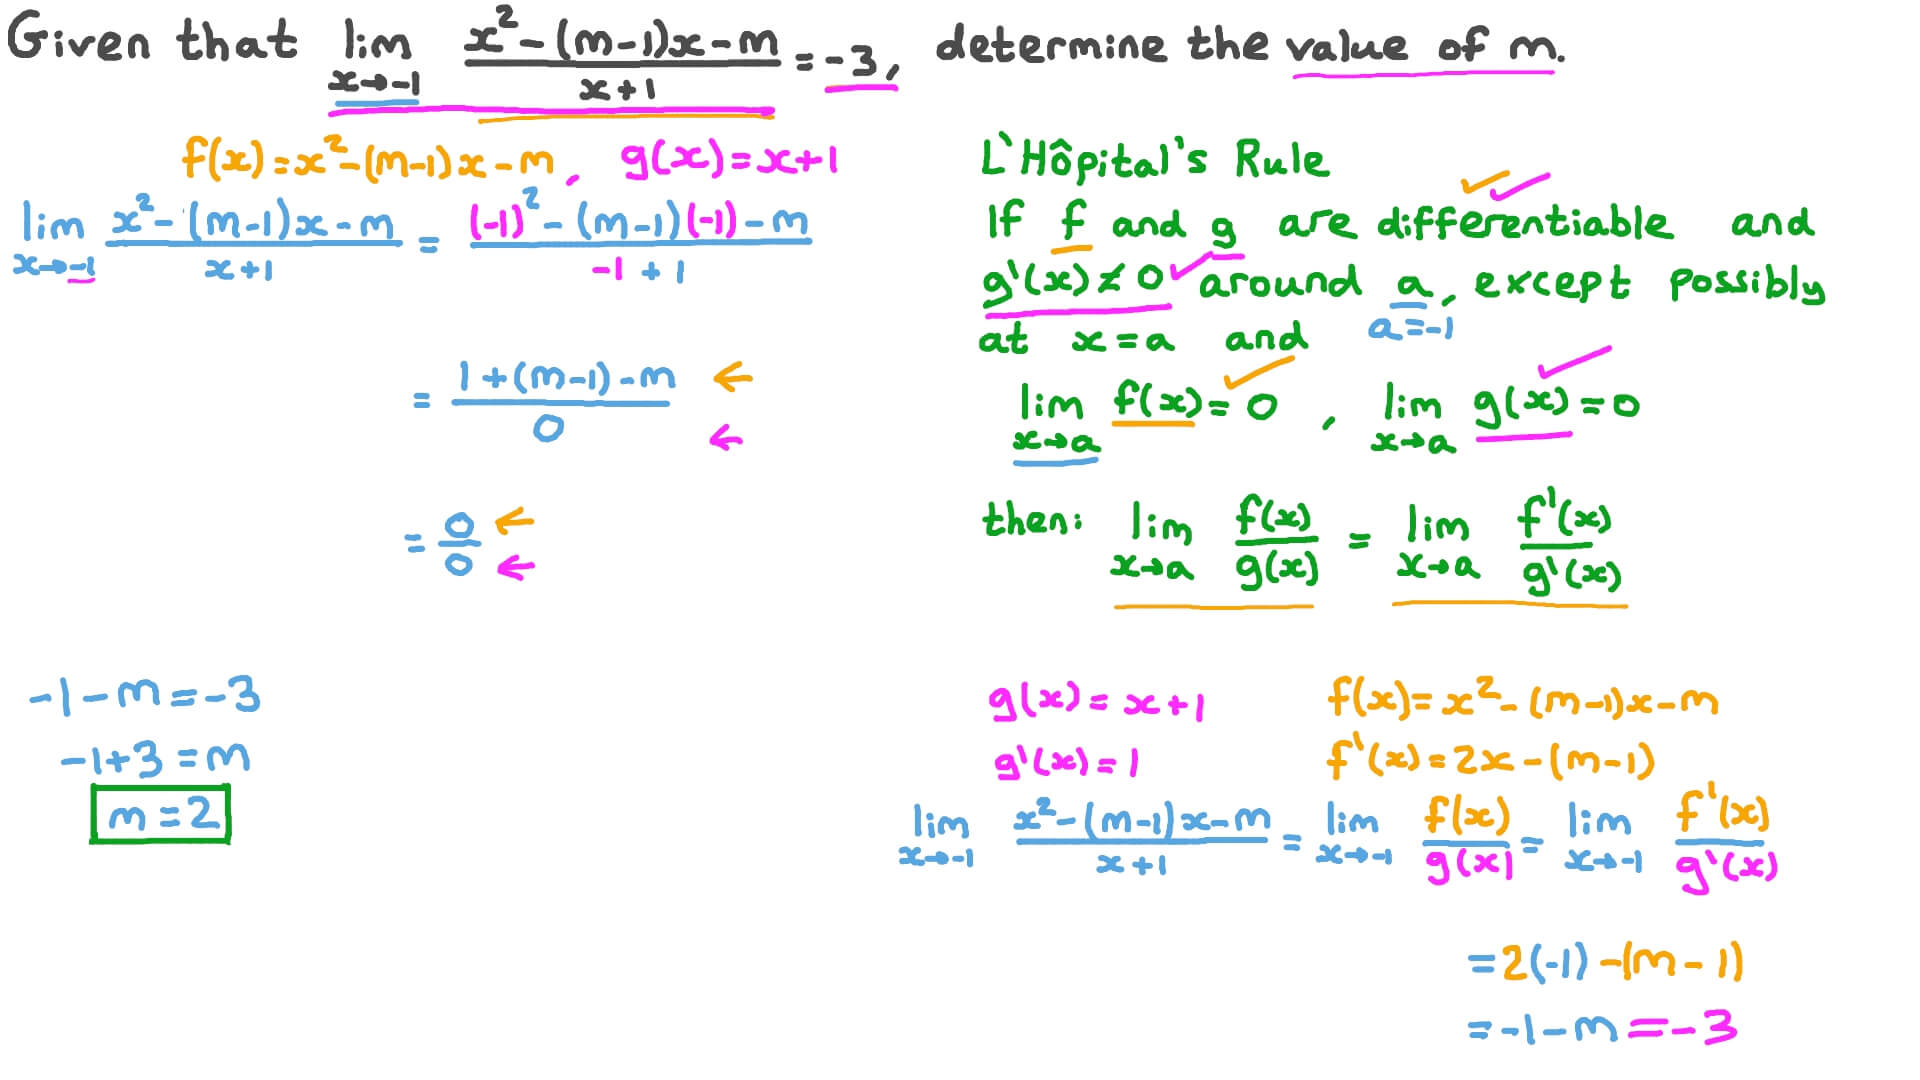 Given that lim x→-1 (x²-(m-1)x-m)/(x+1) = -3, determine the value of m.
f(x)=x²-(m-1)x-m, g(x)=x+1
lim x→-1 (x²-(m-1)x-m)/(x+1) = ((-1)²-(m-1)(-1)-m)/(-1+1)
= (1+(m-1)-m)/0 ← ←
= 0/0 ← ←
-1-m=-3
-1+3=m
m=2
L'Hôpital's Rule
If f and g are differentiable and
g'(x)≠0 around a, except possibly
at x=a and
a=-1
lim x→a f(x)=0, lim x→a g(x)=0
then: lim x→a f(x)/g(x) = lim x→a f'(x)/g'(x)
g(x)=x+1 f(x)=x²-(m-1)x-m
g'(x)=1 f'(x)=2x-(m-1)
lim x→-1 (x²-(m-1)x-m)/(x+1) = lim x→-1 f(x)/g(x) = lim x→-1 f'(x)/g'(x)
=2(-1)-(m-1)
=-1-m=-3